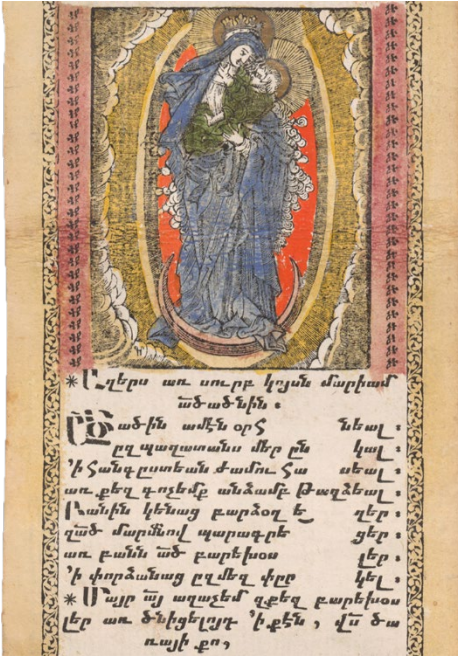 *Աղերս առ սուրբ կոյսն մարիամ
ածածնին ։
Ծածին ամէն օրհ նեալ ։
ըզպաղատանս մեր ըն կալ ։
՚ի հանգըստեան ժամու հա սեալ ։
առ քեզ գոչեմք անձամբ թաղձեալ ։
Բանին կենաց բարձօղ ե զեր ։
զած մարմնով պարագրե ցեր ։
առ բանն ած բարեխօս լեր ։
՚ի փորձանաց ըզմեզ փըր կել ։
*Մայր այ աղաչեմ զքեզ բարեխօս
լեր առ ծնիցելոյդ ՚ի քէն , վն ծա
ռայի քո ,